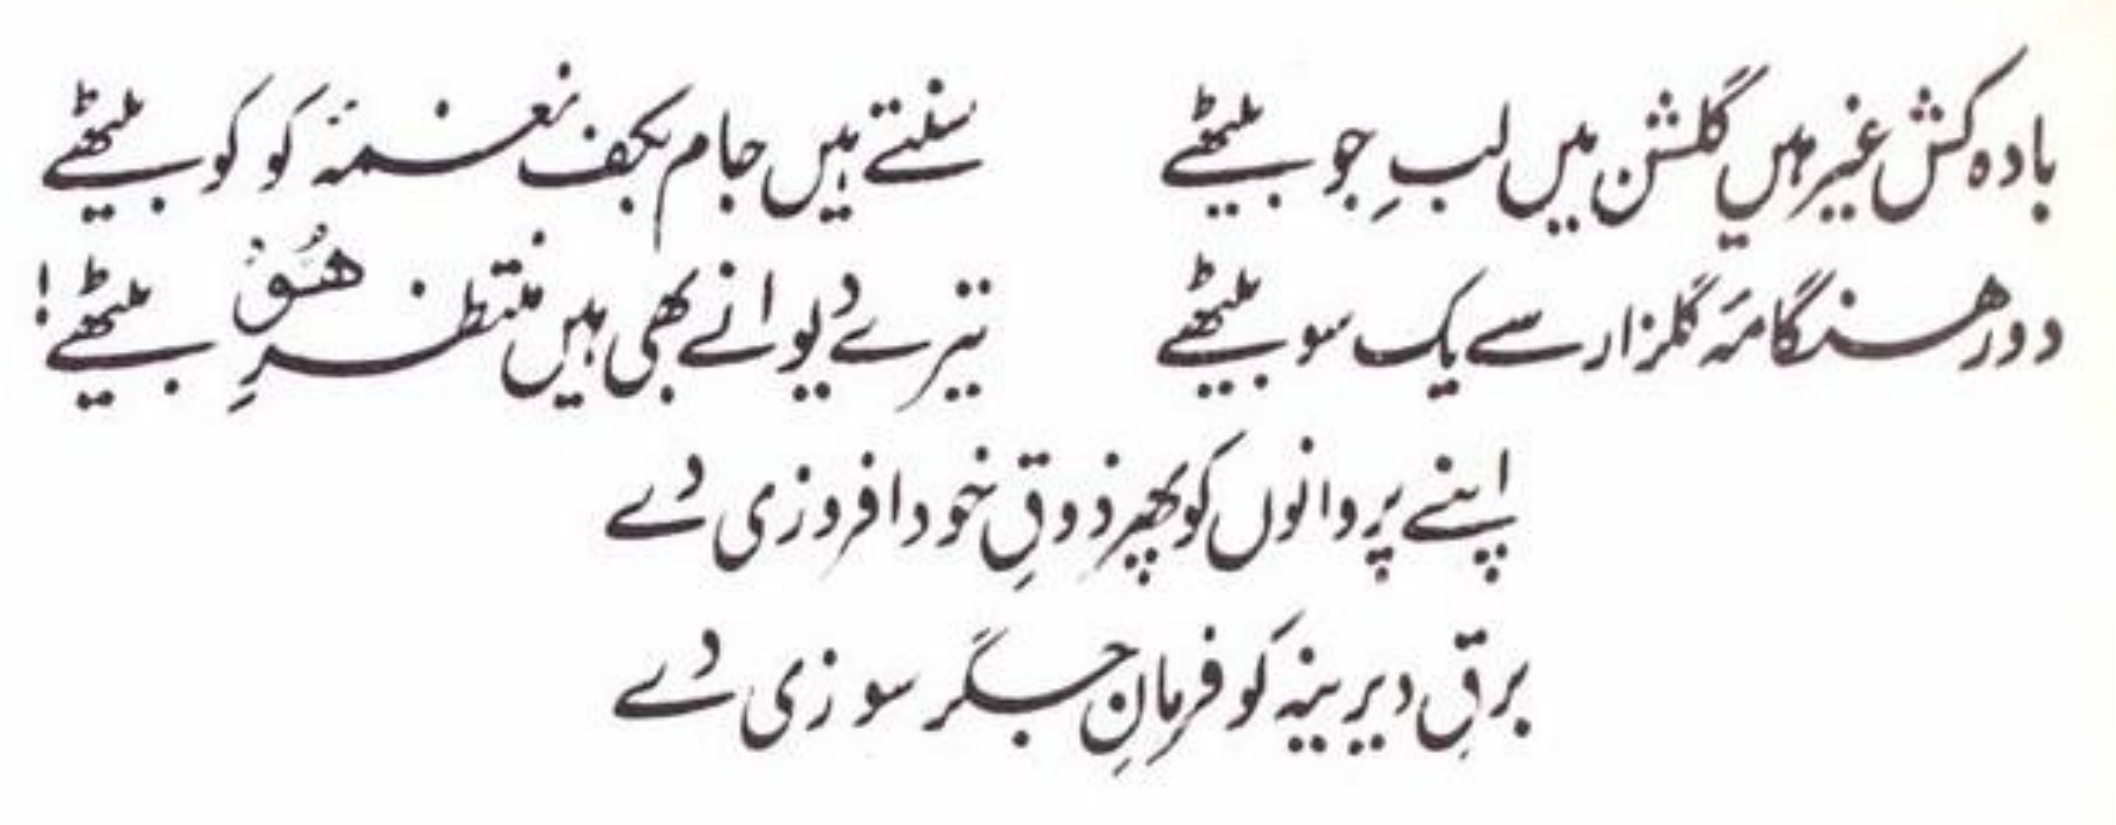 بادہ کش غیر ہیں گلشن میں لبِ جو بیٹھے سنتے ہیں جام بکف نغمۂ کو کو بیٹھے
دور ہنگامۂ گلزار سے یک سو بیٹھے تیرے دیوانے بھی ہیں منتظرِ ھُوْ بیٹھے!
اپنے پروانوں کو پھر ذوقِ خود افروزی دے
برقِ دیرینہ کو فرمانِ جگر سوزی دے